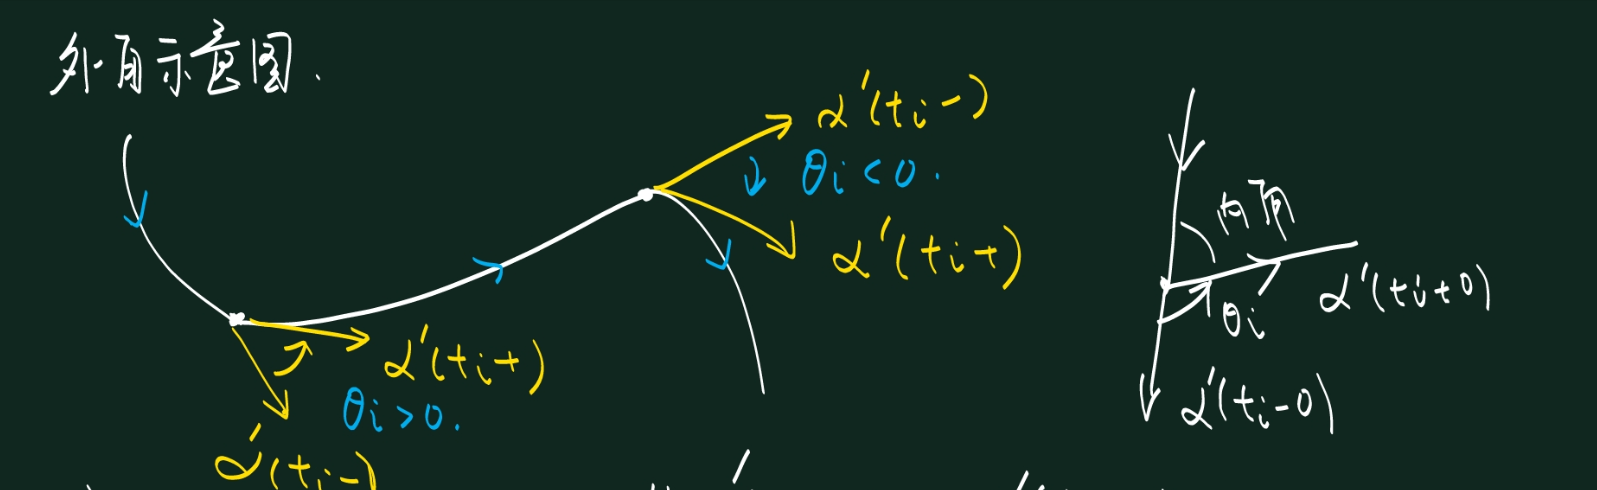 外角示意图.
α'(ti-)
θi<0.
α'(ti+)
α'(ti+)
θi>0.
α'(ti-)
内角
θi
α'(ti+0)
α'(ti-0)